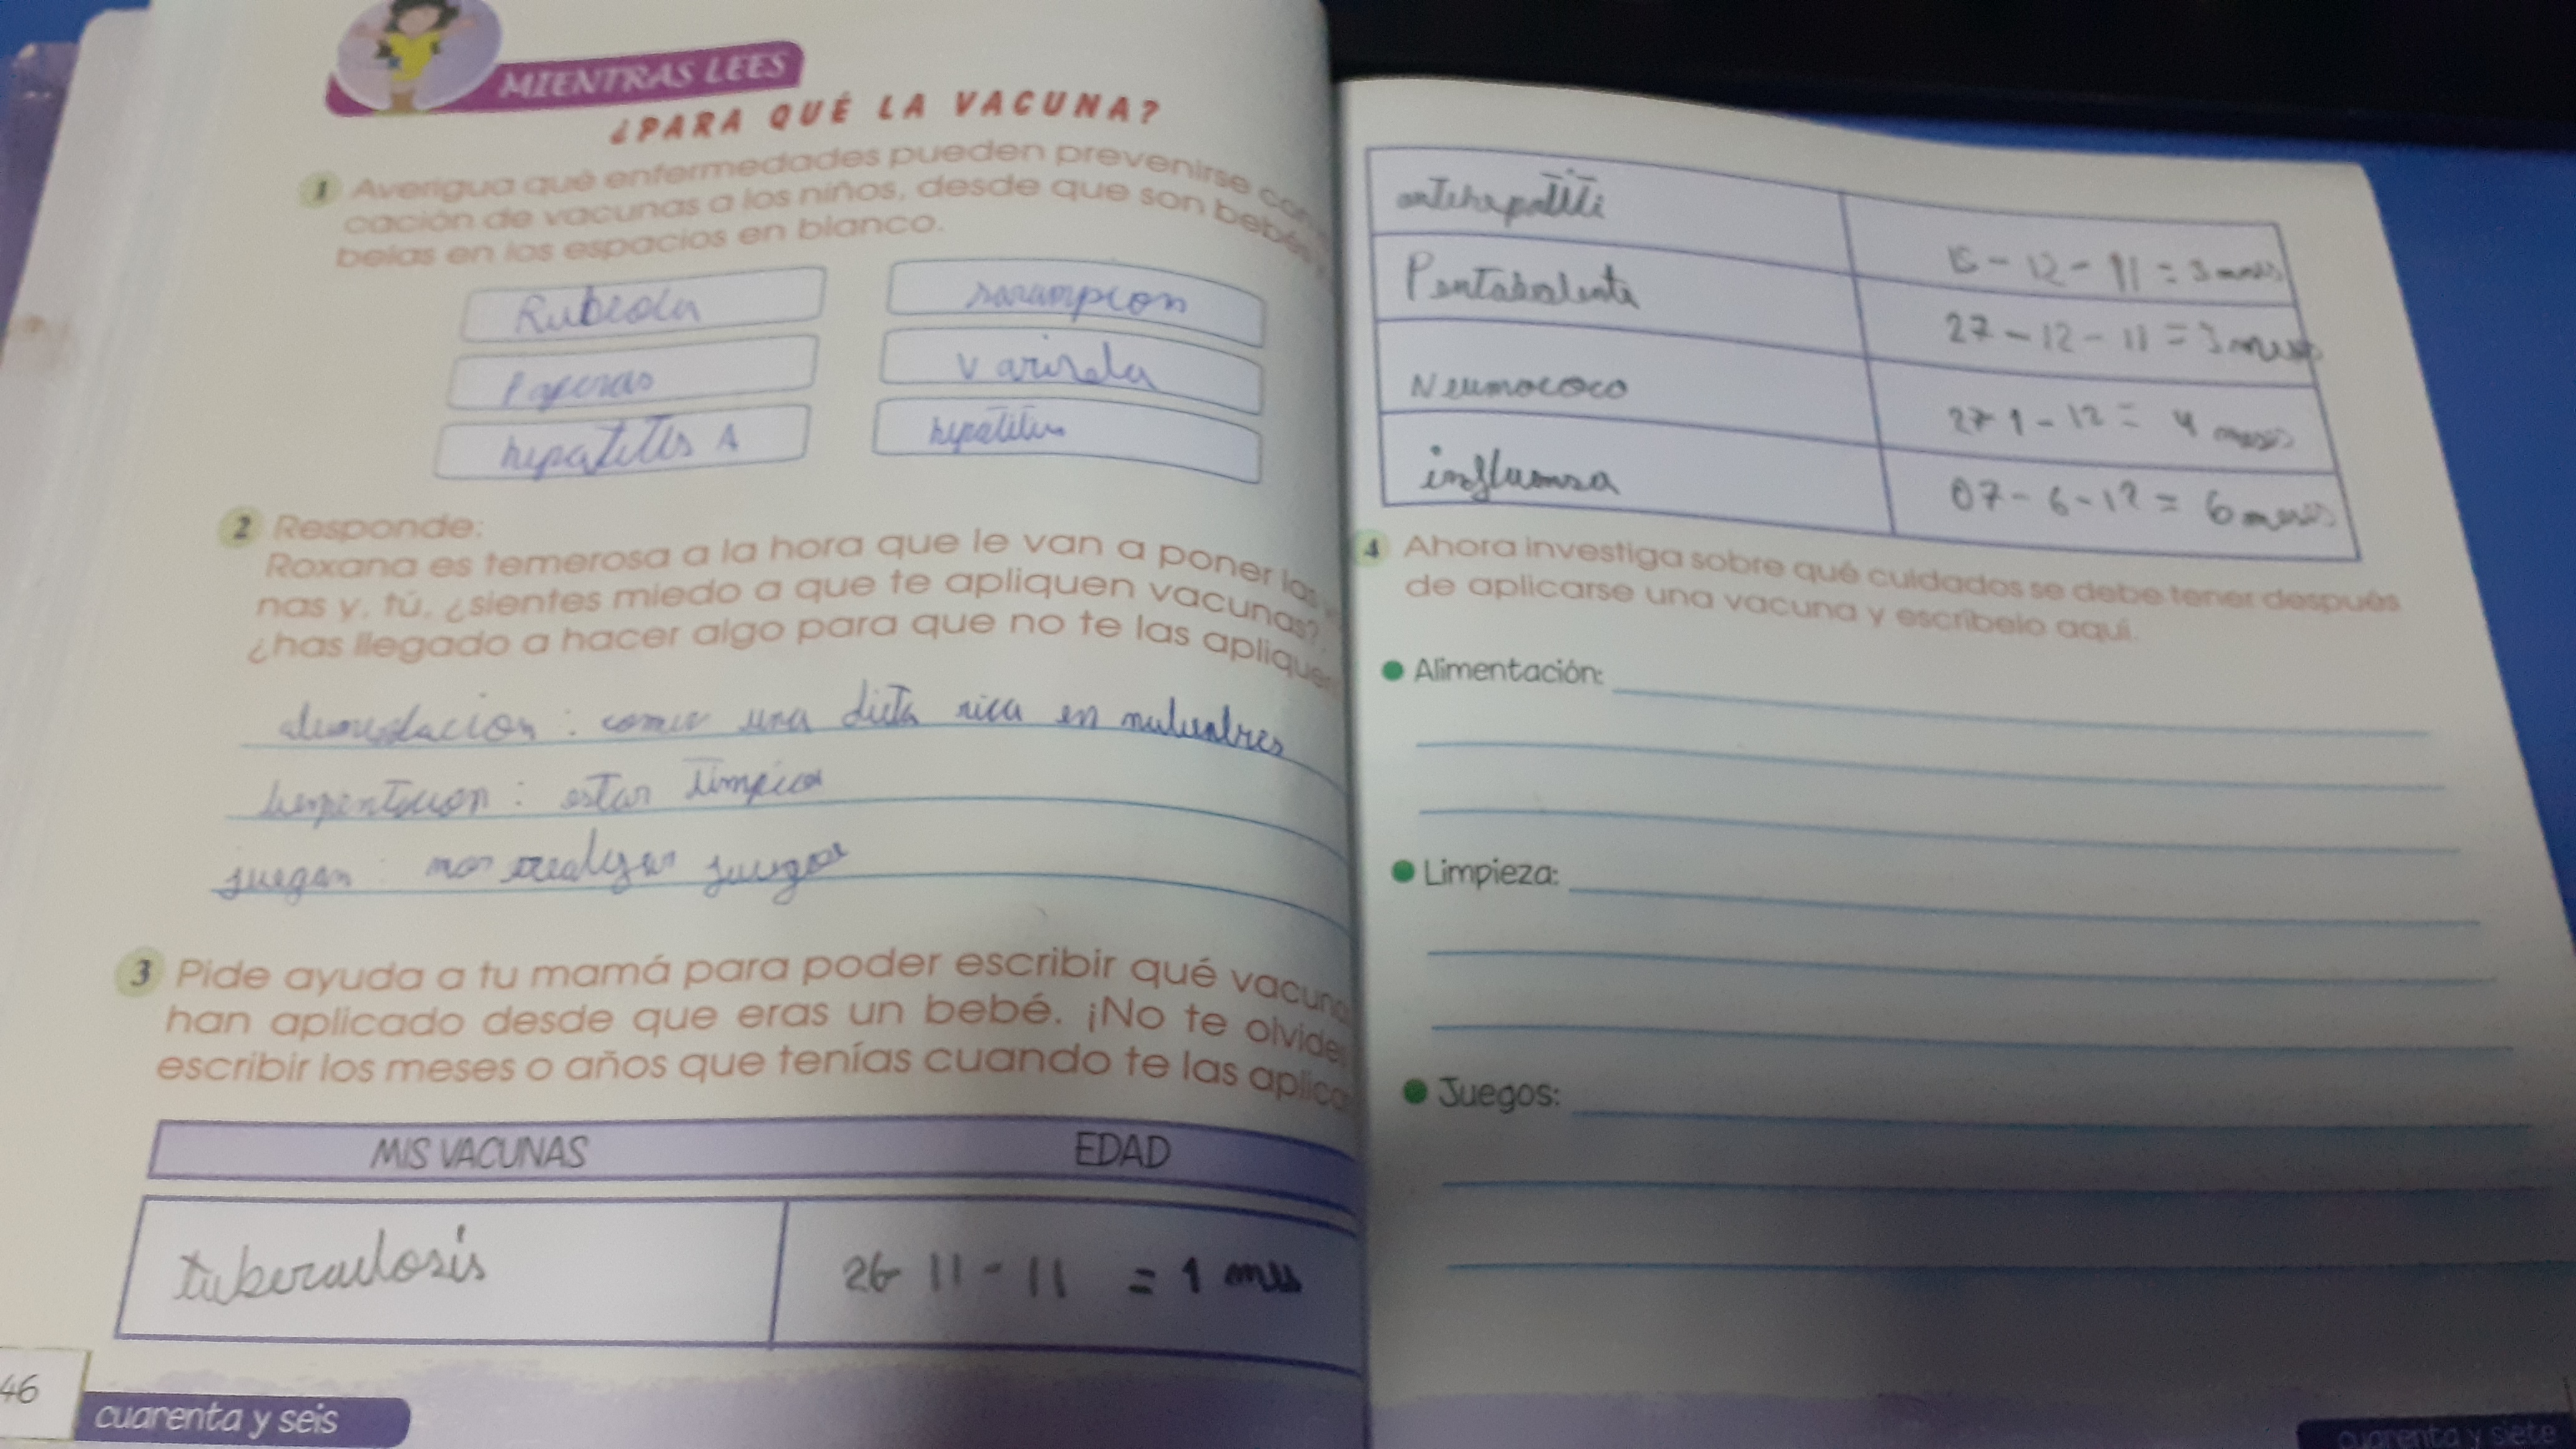 MIENTRAS LEES
¿PARA QUÉ LA VACUNA?
1 Averigua qué enfermedades pueden prevenirse con
cación de vacunas a los niños, desde que son bebés
belas en los espacios en blanco.
Rubeola sarampion
Paperas
hepatitis A hepatitis
2 Responde:
Roxana es temerosa a la hora que le van a poner las
nas y, tú, ¿sientes miedo a que te apliquen vacunas?,
¿has llegado a hacer algo para que no te las apliquen
comer una dieta rica en
: estar limpios
juegan: realizar juegos
3 Pide ayuda a tu mamá para poder escribir qué vacuna
han aplicado desde que eras un bebé. ¡No te olvides
escribir los meses o años que tenías cuando te las aplica
MIS VACUNAS EDAD
tuberculosis 26 11 - 11 = 1 mes
46
cuarenta y seis
antihepatiti - 12 - 11 = 3 meses
27 - 12 - 11 = 3 meses
Neumococo 27 1 - 12 = 4 meses
07 - 6 - 12 = 6 meses
4 Ahora investiga sobre qué cuidados se debe tener después
de aplicarse una vacuna y escríbelo aquí.
Alimentación:
Limpieza:
Juegos:
cuarenta y siete